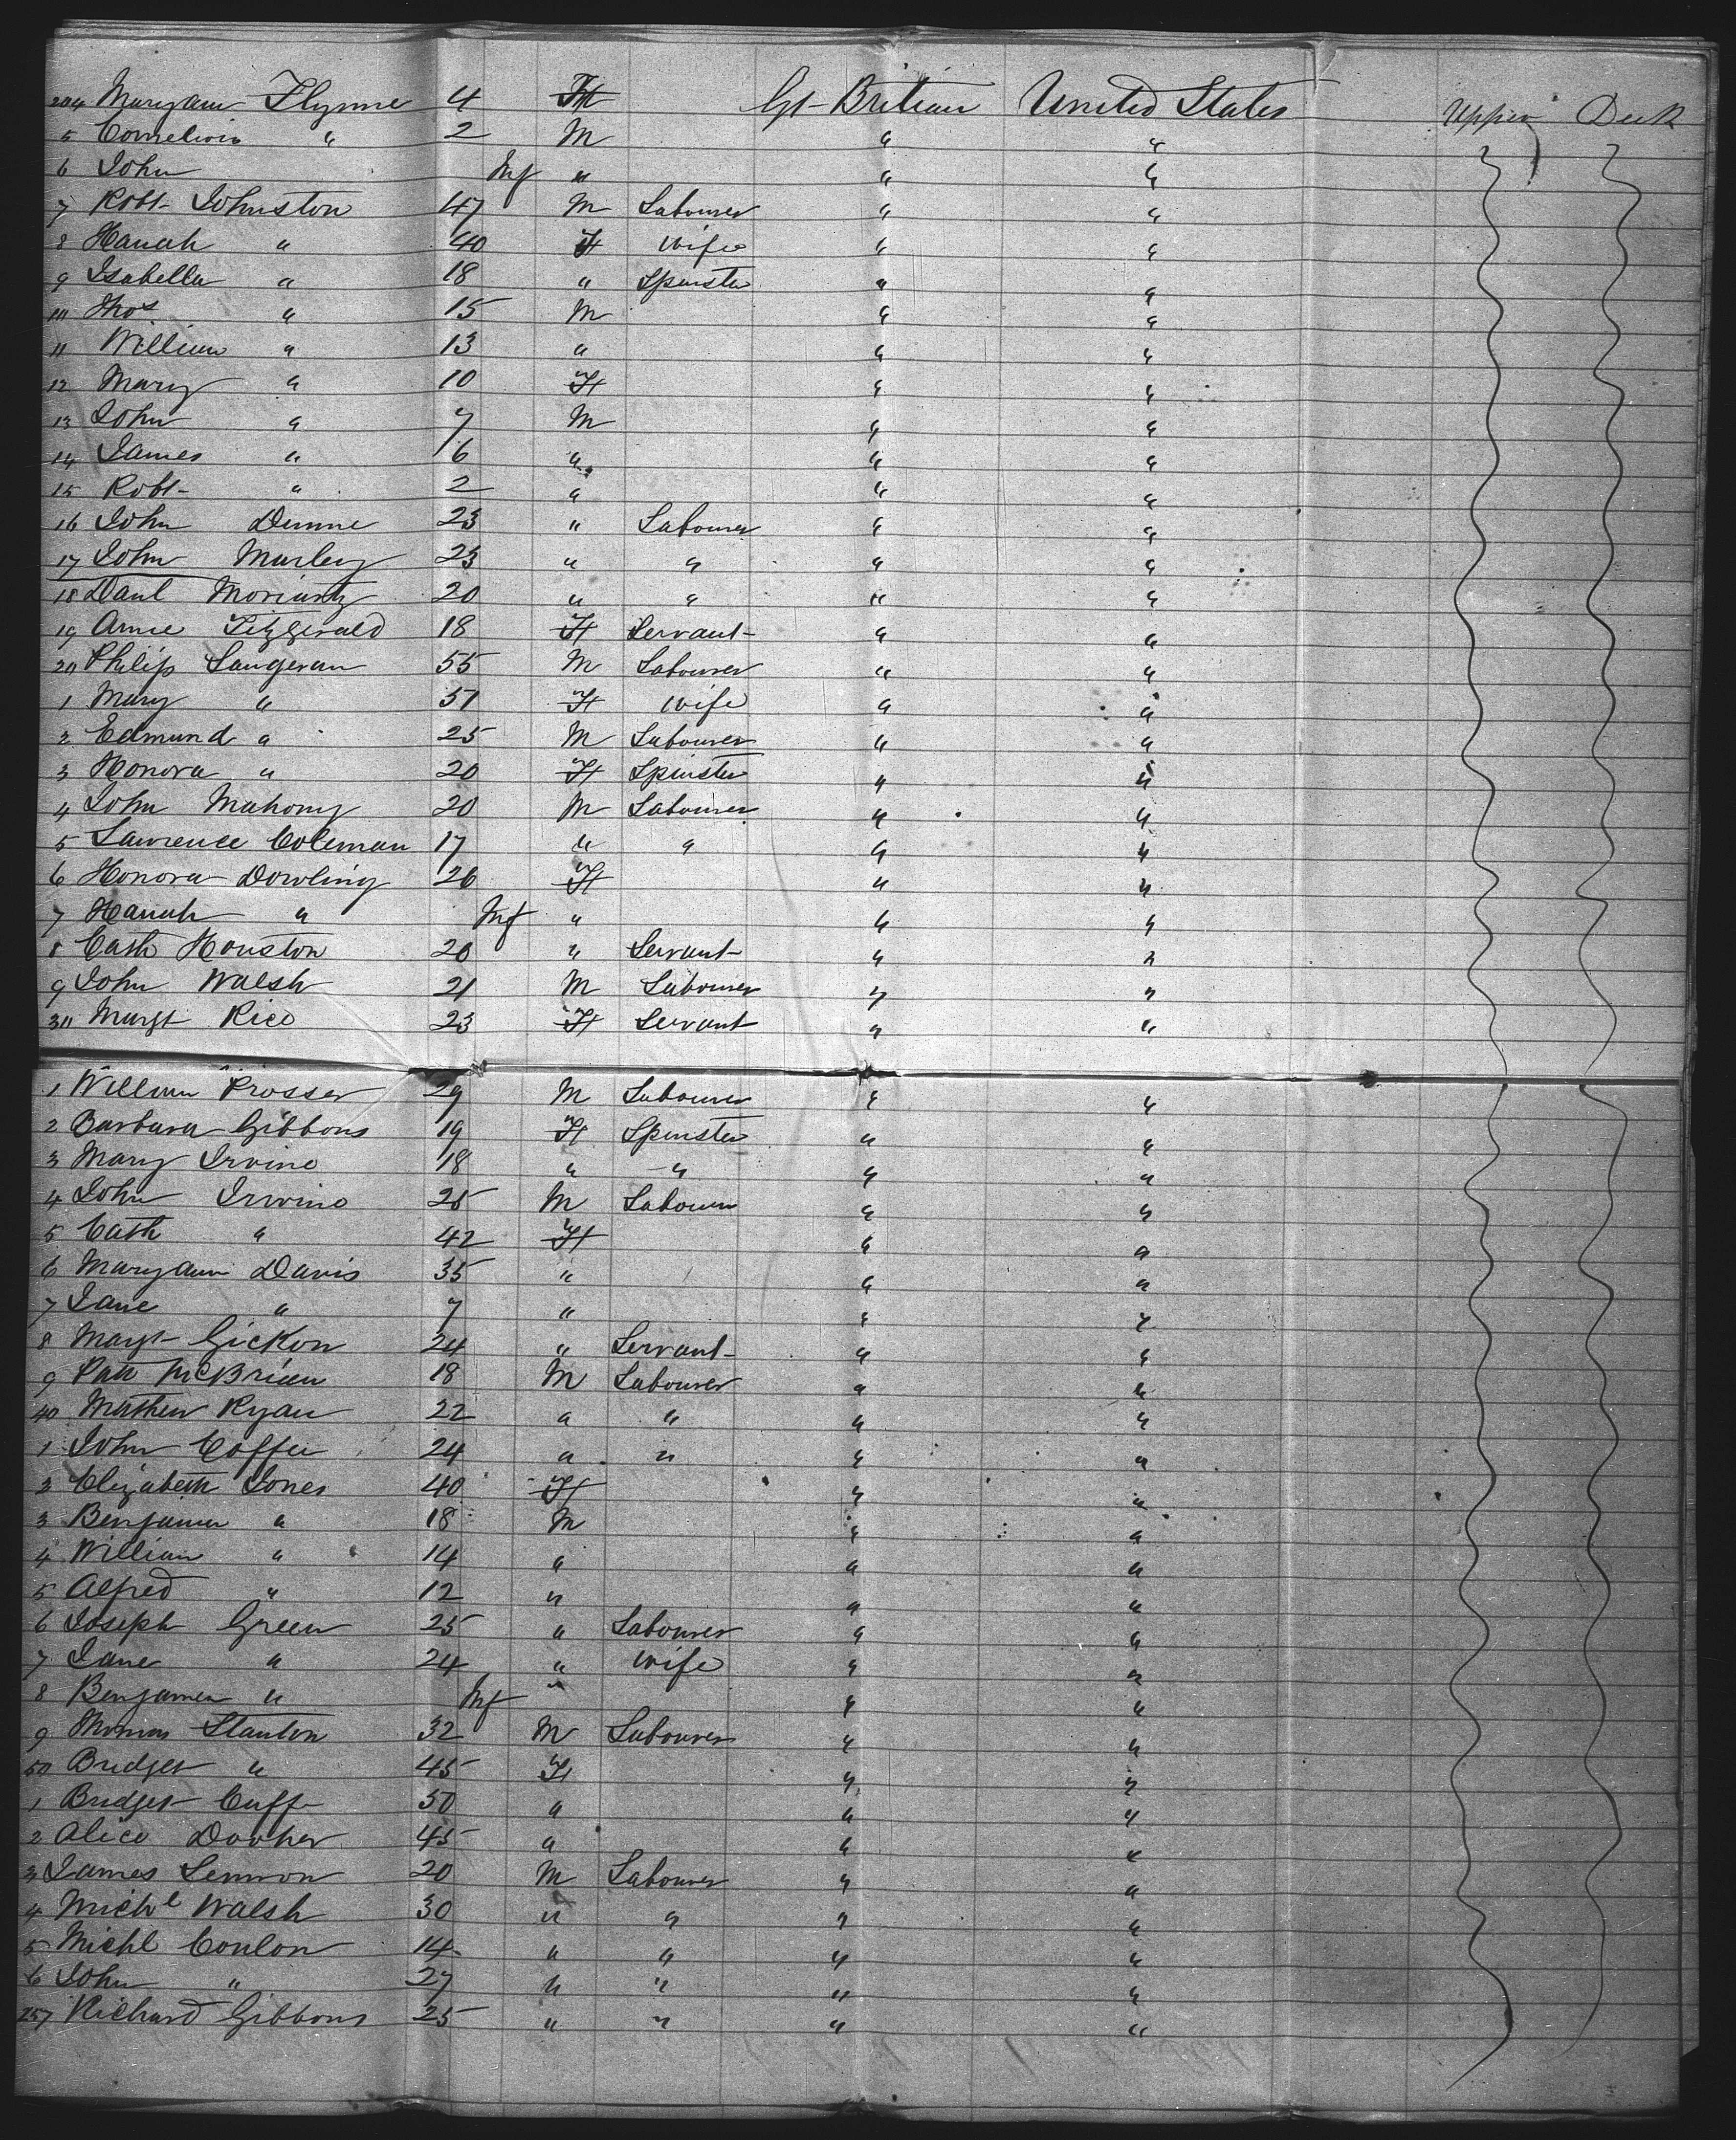 204 Maryann Flynne 4 F Gt Britian United States Upper Deck
5 Cornelious " 2 M " "
6 John Inf " " "
7 Robt Johnston 47 M Labourer " "
8 Hanah " 40 F Wife " "
9 Isabella " 18 " Spinster " "
10 Thos " 15 M " "
11 William " 13 " " "
12 Mary " 10 F " "
13 John " 7 M " "
14 James " 6 " " "
15 Robt " 2 " " "
16 John Dunne 23 " Labourer " "
17 John Murley 23 " " " "
18 Danl Moriarty 20 " " " "
19 Anne Fitzgerald 18 F Servant " "
20 Philip Langeran 55 M Labourer " "
1 Mary " 51 F Wife " "
2 Edmund " 25 M Labourer " "
3 Honora " 20 F Spinster " "
4 John Mahony 20 M Labourer " "
5 Lawrence Coleman 17 " " " "
6 Honora Dowling 26 F " "
7 Hanah " Inf " " "
8 Cath Houston 20 " Servant " "
9 John Walsh 21 M Labourer " "
30 Margt Rice 23 F Servant " "
1 William Prosser 29 M Labourer " "
2 Barbara Gibbons 19 F Spinster " "
3 Mary Irvine 18 " " " "
4 John Irvine 25 M Labourer " "
5 Cath " 42 F " "
6 Maryann Davis 35 " " "
7 Jane " 7 " " "
8 Margt Gickon 24 " Servant " "
9 Patt McBrien 18 M Labourer " "
40 Mathew Ryan 22 " " " "
1 John Coffee 24 " " " "
2 Elizabeth Jones 40 F " "
3 Benjamin " 18 M " "
4 William " 14 " " "
5 Alfred " 12 " " "
6 Joseph Green 25 " Labourer " "
7 Jane " 24 " Wife " "
8 Benjamen " Inf " " "
9 Thomas Stanton 32 M Labourer " "
50 Bridget " 45 F " "
1 Bridget Cuffe 50 " " "
2 Alice Dooher 45 " " "
3 James Lennon 20 M Labourer " "
4 Michl Walsh 30 " " " "
5 Michl Conlon 14 " " " "
6 John " 27 " " " "
257 Richard Gibbons 25 " " " "